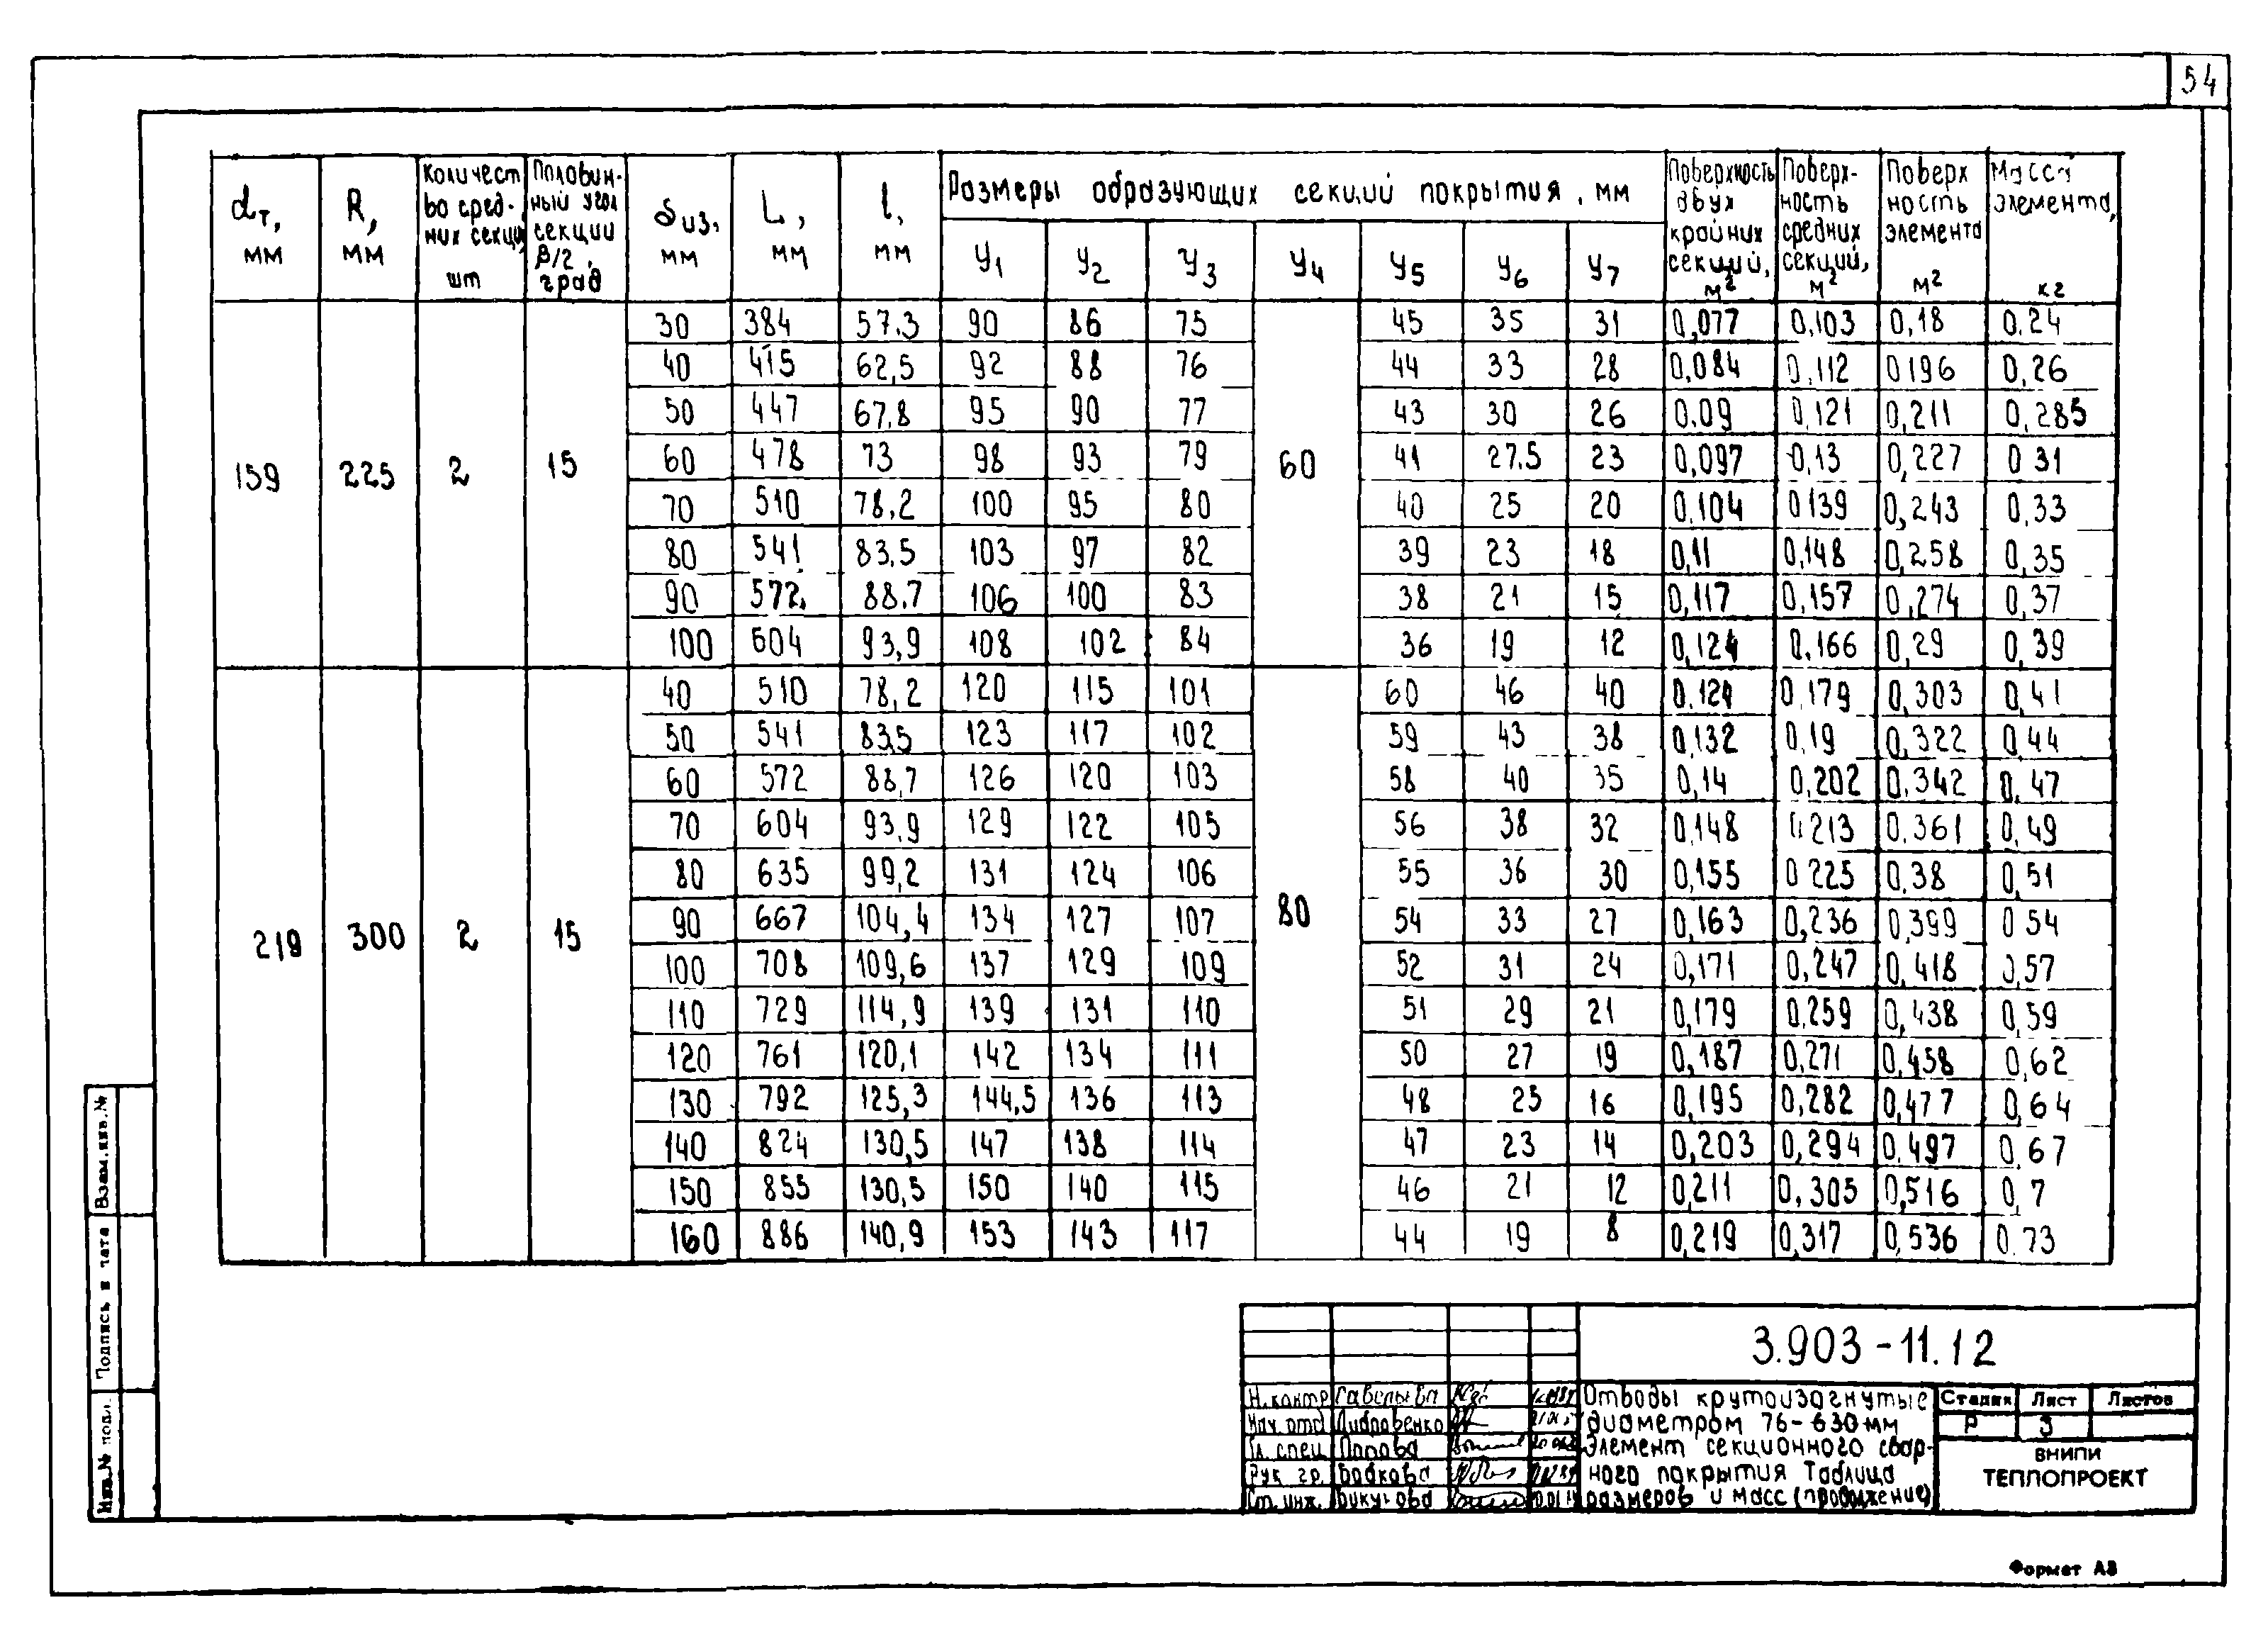 54
dт, мм
R, мм
Количест во сред- них секци, шт
Половин- ный угол секции β/2, град
δиз, мм
L, мм
l, мм
Размеры образующих секций покрытия, мм
У1 У2 У3 У4 У5 У6 У7
Поверхность двух крайних секций, м²
Поверх- ность средних секций, м²
Поверх ность элемента м²
Масса элемента, кг
159 225 2 15 60
30 384 57.3 90 86 75 45 35 31 0,077 0,103 0,18 0.24
40 415 62,5 92 88 76 44 33 28 0,084 0,112 0196 0,26
50 447 67.8 95 90 77 43 30 26 0.09 0,121 0,211 0,285
60 478 73 98 93 79 41 27.5 23 0,097 0,13 0,227 0 31
70 510 78,2 100 95 80 40 25 20 0.104 0139 0,243 0,33
80 541 83,5 103 97 82 39 23 18 0,11 0,148 0,258 0,35
90 572. 88.7 106 100 83 38 21 15 0,117 0,157 0,274 0,37
100 604 93,9 108 102 84 36 19 12 0,124 0.166 0,29 0,39
219 300 2 15 80
40 510 78,2 120 115 101 60 46 40 0.124 0,179 0,303 0,41
50 541 83,5 123 117 102 59 43 38 0,132 0,19 0,322 0,44
60 572 88,7 126 120 103 58 40 35 0,14 0,202 0.342 0,47
70 604 93,9 129 122 105 56 38 32 0,148 0,213 0.361 0,49
80 635 99,2 131 124 106 55 36 30 0,155 0 225 0.38 0,51
90 667 104,4 134 127 107 54 33 27 0,163 0,236 0,399 0 54
100 708 109,6 137 129 109 52 31 24 0,171 0,247 0,418 0,57
110 729 114,9 139 131 110 51 29 21 0,179 0.259 0,438 0,59
120 761 120,1 142 134 111 50 27 19 0,187 0,271 0,458 0,62
130 792 125,3 144,5 136 113 48 25 16 0,195 0,282 0,477 0,64
140 824 130,5 147 138 114 47 23 14 0,203 0,294 0.497 0.67
150 855 130,5 150 140 115 46 21 12 0,211 0,305 0,516 0,7
160 886 140,9 153 143 117 44 19 8 0,219 0,317 0,536 0.73
Взам.инв.№
Подпись и дата
Инв.№ подл.
3.903-11.12
Н.контр
Нач. отд
Гл. спец Попова
Рук гр.
Ст. инж.
Отводы крутоизогнутые
диаметром 76-630мм
Элемент секционного сбор-
ного покрытия Таблица
размеров и масс (продолжение)
Стадия Лист Листов
Р 3
ВНИПИ
ТЕПЛОПРОЕКТ
Формат А3